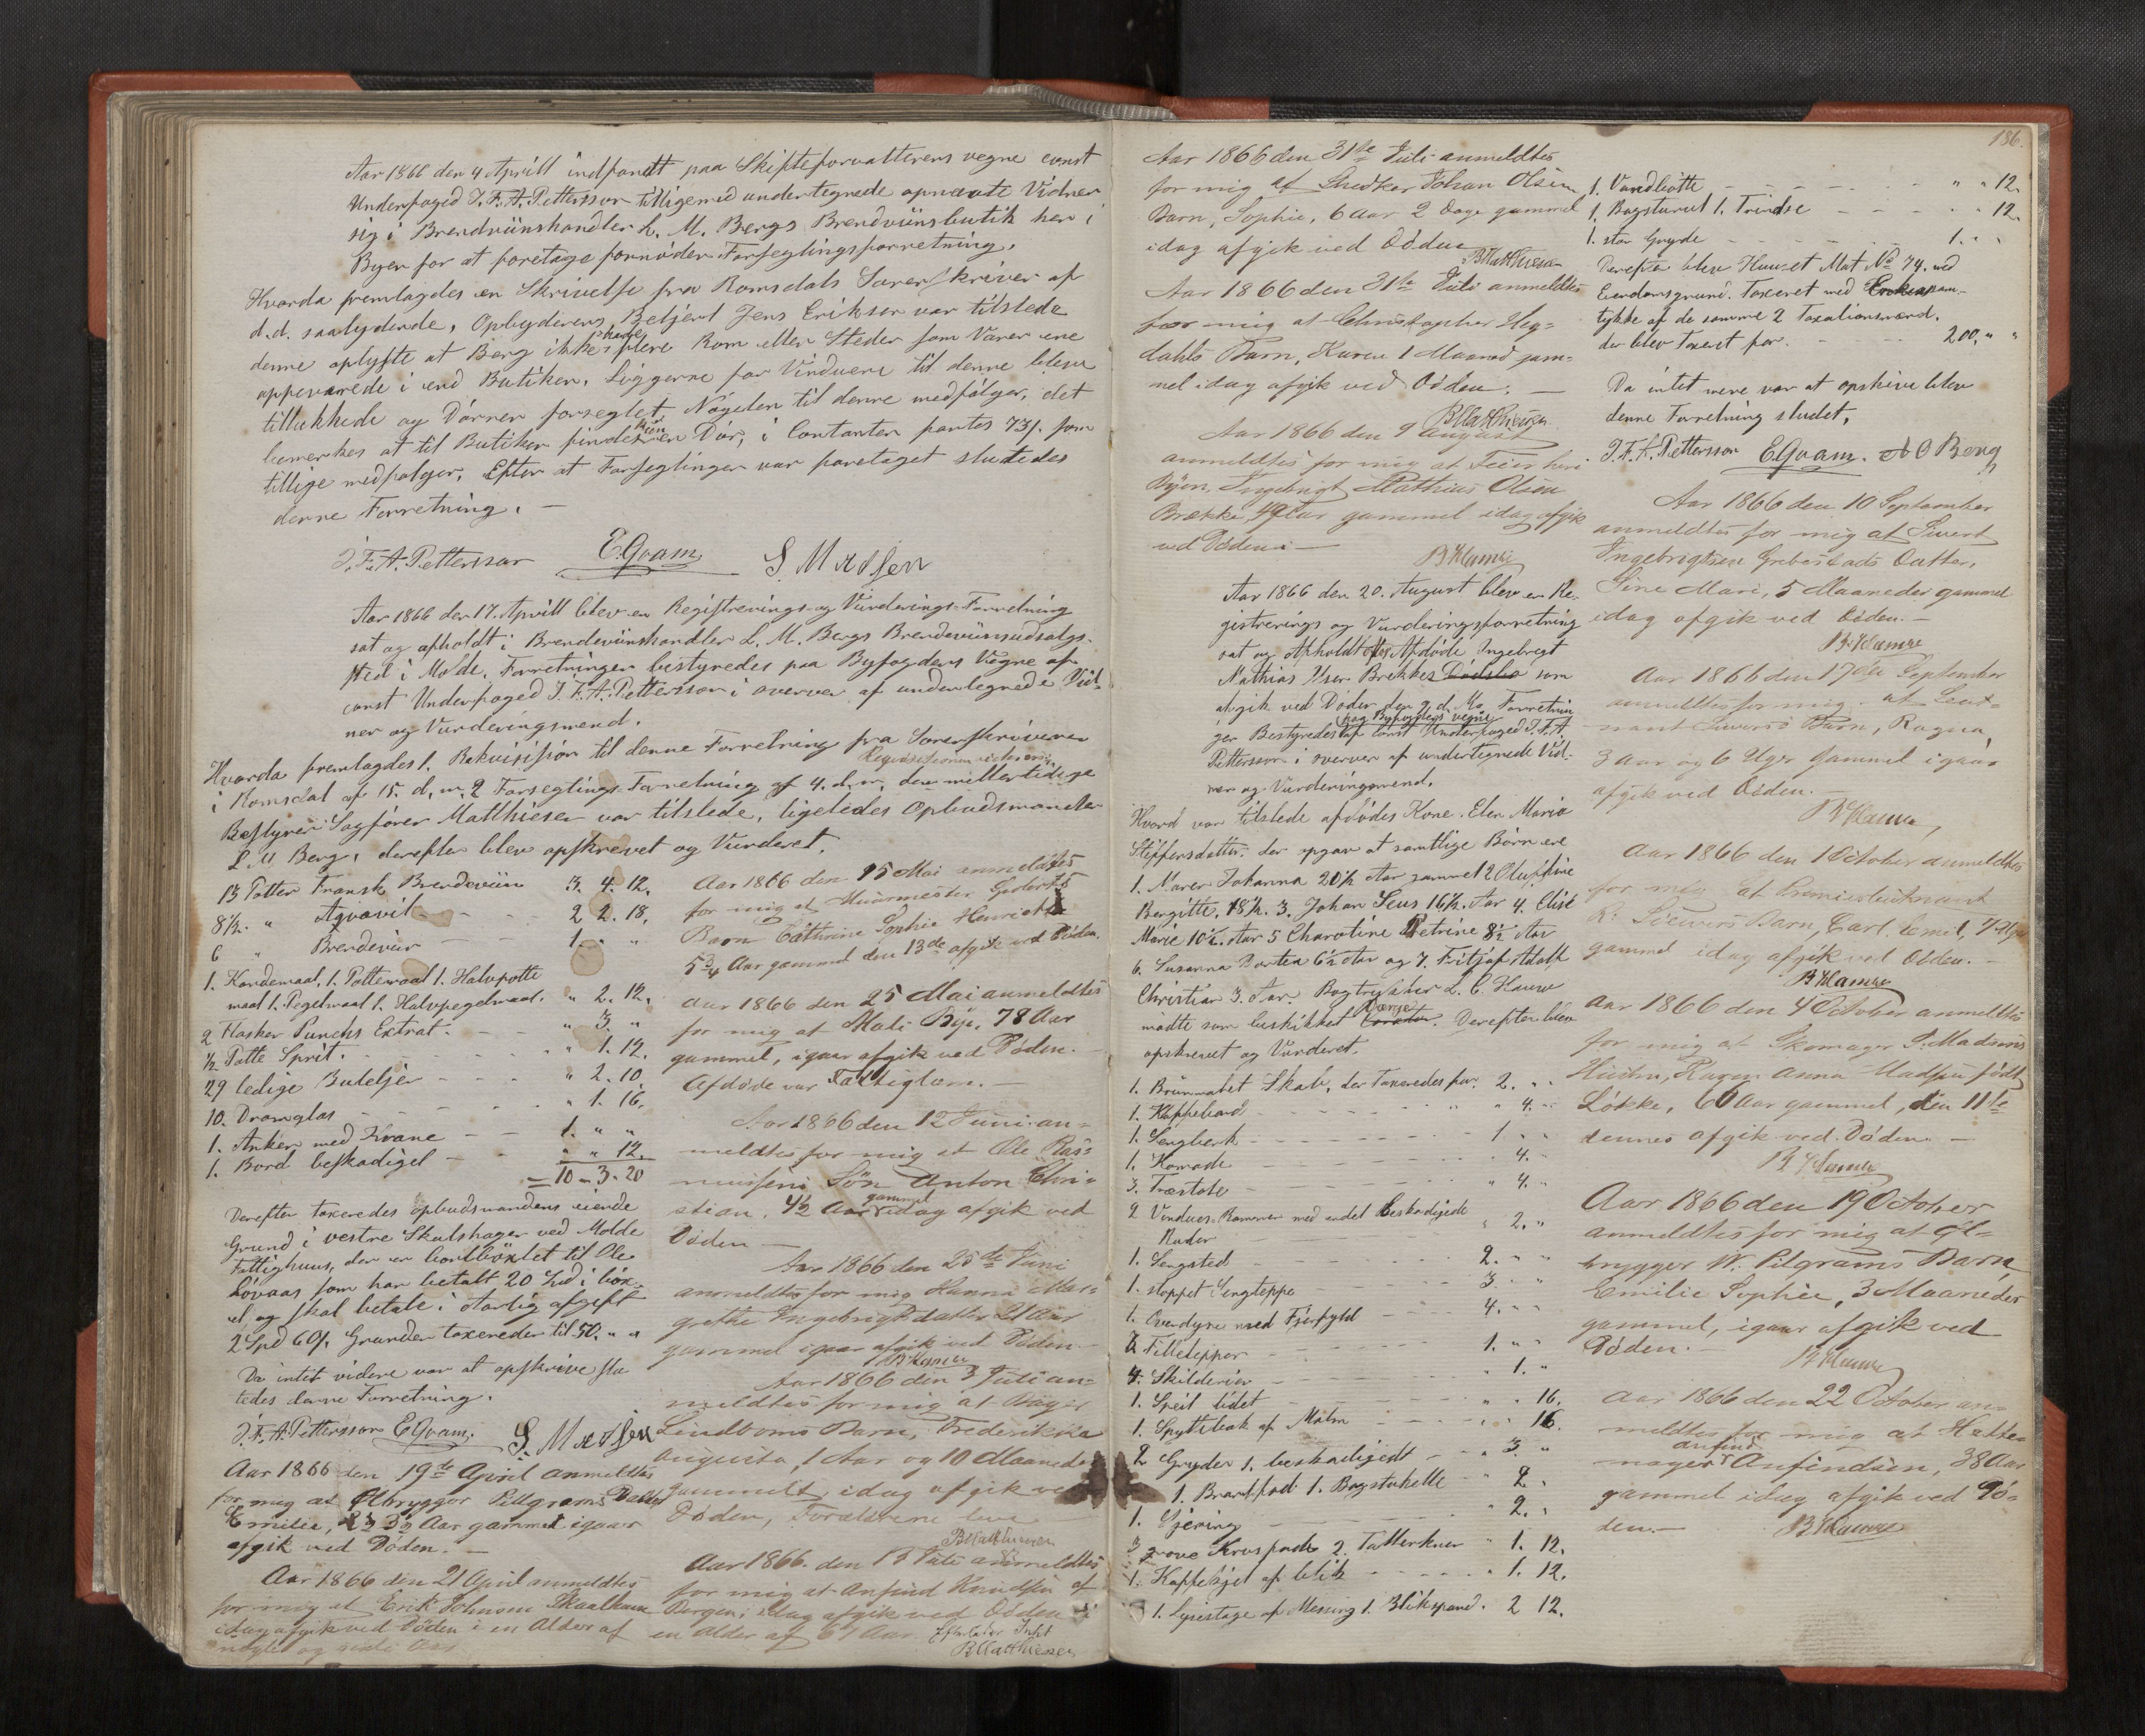 Aar 1866 den 4 Aprill indfandt paa Skifteforvalterens vegne const
Underfoged J. F. A. Pettersson tilligemed undertegnede opnævnte Vidner
sig i Brendviinshandler L. M. Bergs Brendviinsbutik her i
Byen for at foretage fornøden Forseglingsforretning.
Hvorda fremlagdes en Skrivelse fra Romsdals Sorenskriver af
d.d. saalydende. Opbyderens Betjent Jens Eriksen var tilstede
denne oplyste at Berg ikke havde flere Rom eller Steder som Varer ere
oppevarede i end Butiken. Liggerne for Vinduene til denne bleve
tillukkede og Dørren forseglet. Nøgelen til denne medfølger, det
bemerkes at til Butiken findes kun en Dør, i Contanter fantes 73 s. som
tillige medfølger. Efter at Forseglingen var foretaget sluttedes
denne Forretning. —
J. F. A. Pettersson E. Qvam S. Madsen
Aar 1866 den 17. Aprill blev en Registrerings og Vurderings-Forretning
sat og afholdt i Brendeviinshandler L. M. Bergs Brendeviinsudsalgs-
sted i Molde. Forretningen bestyredes paa Byfogdens Vegne af
const Underfoged J. F. A. Pettersson i overver af undertegnede Vid-
ner og Vurderingsmend.
Hvorda fremlagdes 1. Rekvisision til denne Forretning fra Sorenskriveren
i Romsdal af 15. d. m. 2 Forseglings-Forretning af 4. d. m. den midlertidige
Bestyrer Sagfører Matthiesen var tilstede, ligeledes Opbudsmanden
L. M. Berg, derefter blev opskrevet og Vurderet.
13 Potter Fransk Brendeviin 3. 4. 12.
8½ " Aqvavit 2 2. 18.
6 " Brendeviin 1. " "
1. Kandemaal, 1. Pottemaal 1. Halvpotte
maal 1. Pegelmaal 1. Halvpegelmaal. " 2. 12.
2 Flasker Punchs Extrat. " 3. "
½ Potte Sprit. " 1. 12.
29 ledige Buteljer " 2. 10.
10. Dramglas " 1. 16.
1. Anker med Krane 1. " "
1. Bord beskadiget " " 12.
= 10 - 3 - 20
Derefter taxeredes opbudsmandens eiende
Grund i vestre Skulshagen ved Molde
Fattighuus, der er bortbøxlet til Ole
Løvaas som har betalt 20 Spd i bøx-
el, og skal betale i Aarlig afgift
2 Spd 60 s. Grunden taxeredes til 50. " "
Da intet videre var at opskrive slu
tedes denne Forretning.
J. F. A. Pettersson E. Qvam. S. Madsen
Aar 1866 den 19de April anmeldtes
for mig at Ølbrygger Pillgrams Datter
Emilie, 3½ Aar gammel igaar
afgik ved Døden. —
Aar 1866 den 21 April anmeldtes
for mig at Erik Johnsen
idag afgik ved Døden i en Alder af
nogle og Aar
Aar 1866 den 15 Mai anmeldtes
for mig at Muurmester
Barn Cathrine Sophie Henriette
5¾ Aar gammel den 13de afgik ved Døden.
Aar 1866 den 25 Mai anmeldtes
for mig at Mali Bye, 78 Aar
gammel, igaar afgik ved Døden. —
Afdøde var Fattiglem. —
Aar 1866 den 12 Juni an-
meldtes for mig at Ole Ras-
mussens Søn Anton Chri-
stian, 4½ Aar gammel idag afgik ved
Døden —
Aar 1866 den 25de Juni
anmeldtes for mig Hanna Mar-
grethe Ingebrigtsdatter 21 Aar
gammel igaar afgik ved Døden. —
B Hamre
Aar 1866 den 3 Juli an-
meldtes for mig at Bager
Lindboms Barn, Frederikka
Augusta, 1 Aar og 10 Maaneder
gammelt, idag afgik ved
Døden, Forældrene leve
B Matthiesen
Aar 1866. den 13 Juli anmeldtes
for mig at Anfind Knudsen af
Bergen, idag afgik ved Døden i
en Alder af 67 Aar. Efterlader Intet
B Matthiesen
Aar 1866 den 31te Juli anmeldtes
for mig at Snedker Johan Olsen
Barn, Sophie, 6 Aar 2 Dage gammel
idag afgik ved Døden
B Matthiesen
Aar 1866 den 31te Juli anmeldtes
for mig at Christopher Heg-
dahls Barn, Karen 1 Maaned gam-
mel idag afgik ved Døden. —
B Matthiesen
Aar 1866 den 9 August
anmeldtes for mig at Feier her i
Byen, Ingebrigt Mathias Olsen
Brække, 49 Aar gammel idag afgik
ved Døden —
B Hamre
Aar 1866 den 20. August blev en Re-
gistrerings og Vurderingsforretning
sat og Afholdt hos Afdøde Ingebregt
Mathias Olsen Brekkes Dødsbo som
afgik ved Døden den 9 d. M. Forretnin
gen Bestyredes paa Byfogdens vegne af const Underfoged J. F. A.
Pettersson i overver af undertegnede Vid-
ner og Vurderingsmend.
Hvord var tilstede afdødes Kone. Elen Maria
Steffensdatter. der opgav at samtlige Børn ere
1. Maren Johanna 20½ Aar gammel 2 Oluffine
Bergitte, 18½. 3. Johan Jens 16½ Aar 4. Elise
Marie 10½ Aar 5 Charoline Petrine 8½ Aar
6. Susanna Dortea 6½ Aar og 7. Fritjof Adolf
Christian 3. Aar. Bogtrykker L. C. Hauve
mødte som beskikket Værge. Derefter blev
opskrevet og Vurderet.
1. Brunmalet Skab, der Taxeredes for. 2. " "
1. Klappebord " 4. "
1. Sengbenk 1 " "
1. Komode " 4. "
3. Træstole " 4. "
2 Vindues-Rammer med endel beskadigede
Ruder " 2. "
1. Sengsted 2. " "
1. stoppet Sengteppe 3 " "
1. Overdyne med Fjerfyld 4. " "
2 Filletepper 1. " "
4. Skilderier " 1. "
1. Speil lidet " " 16.
1. Spyttebak af Malm " " 16.
2 Gryder 1. beskadiget " 3. "
1. Brandfad 1. Bagstukelle " 2. "
1. Gjering " 2. "
3 grove Krusfade 2. Tallerkner " 1. 12.
1. Kaffekjel af blik " 1. 12.
1. Lysestage af Messing 1. Blikspand. 2 12.
186.
1. Vandbøtte " " 12.
1. Bagsturul 1. Trindse " " 12.
1. stor Gryde 1. " "
Derefter blev Huuset Mat. No 74. med
Eiendomsgrund. Taxeret med Enkens sam-
tykke af de samme 2 Taxationsmænd.
der blev Taxeret for. 200. " "
Da intet mere var at opskrive blev
denne Forretning sludet.
J. F. A. Pettersson E. Qvam. A O Berg
Aar 1866 den 10 September
anmeldtes for mig at Sivert
Ingebrigtsen Grebestads Datter,
Sine Mari, 5 Maaneder gammel
idag afgik ved Døden. —
B. Hamre
Aar 1866 den 17de September
anmeldtes for mig at Leut-
nant Sivers Barn, Ragna,
3 Aar og 6 Uger Gammel igaar
afgik ved Døden. —
B Hamre
Aar 1866 den 1 October anmeldtes
for mig at Premierleutenant
R. Sievers Barn, Carl Emil, 7 Uger
gammel idag afgik ved Døden. —
B Hamre
Aar 1866 den 4 October anmeldtes
for mig at Skomager S. Madsens
Hustru, Karen Anna Madsen født
Løkke, 60 Aar gammel, den 11te
dennes afgik ved Døden. —
B Hamre
Aar 1866 den 19 October
anmeldtes for mig at Øl-
brygger W. Pilgrams Barn,
Emilie Sophie, 3 Maaneder
gammel, igaar afgik ved
Døden. —
B Hamre
Aar 1866 den 22 October an-
meldtes for mig at Hatte-
mager Anfind Anfindsen, 38 Aar
gammel idag afgik ved Dø-
den. —
B Hamre